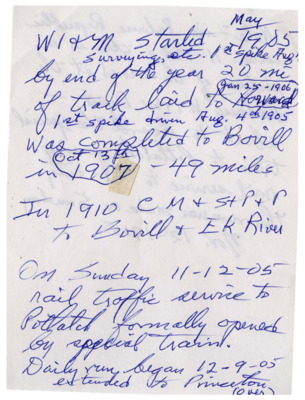 May
W I & M Started 1905
Surveying, etc. 1st spike Aug.
by end of the year 20 mi
Jan 25 - 1906
of track laid to Howard
1st spike driven Aug. 4th 1905
Was completed to Bovill
Oct 13th
in 1907 - 49 miles
In 1910 C M & St P & P
to Bovill & Elk River
On Sunday 11-12-05
rail traffic service to
Potlatch formally opened
by special train.
Daily run began 12-9-05
extended to Princeton
(over)